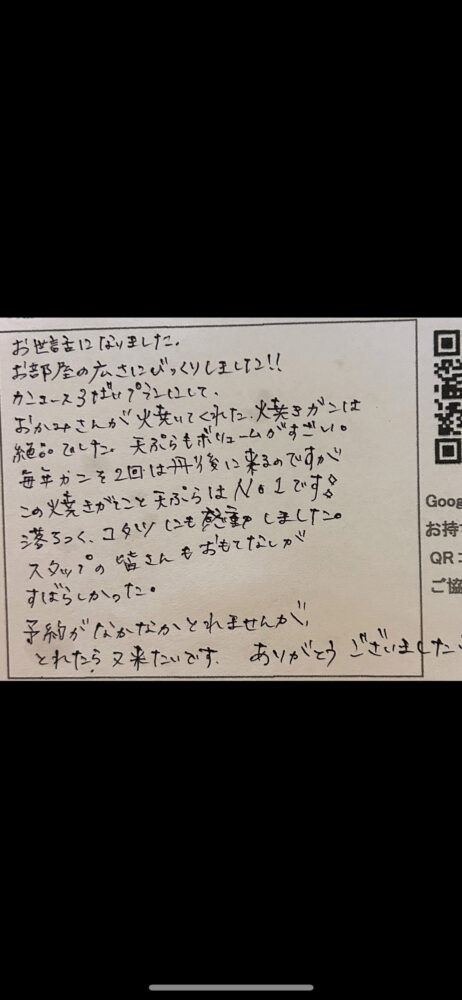 お世話になりました。
お部屋の広さにびっくりしました!!
カニコース3ばいプランにして、
おかみさんが焼いてくれた、焼きガニは
絶品でした。天ぷらもボリュームがすごい。
毎年カニを2回は丹後に来るのですが
この焼きがにこと天ぷらはNo1です!
落ちつく、コタツにも感動しました。
スタッフの皆さんもおもてなしが
すばらしかった。
予約がなかなかとれませんが、
とれたら又来たいです。ありがとうございました
Goog
お持
QRコ
ご協